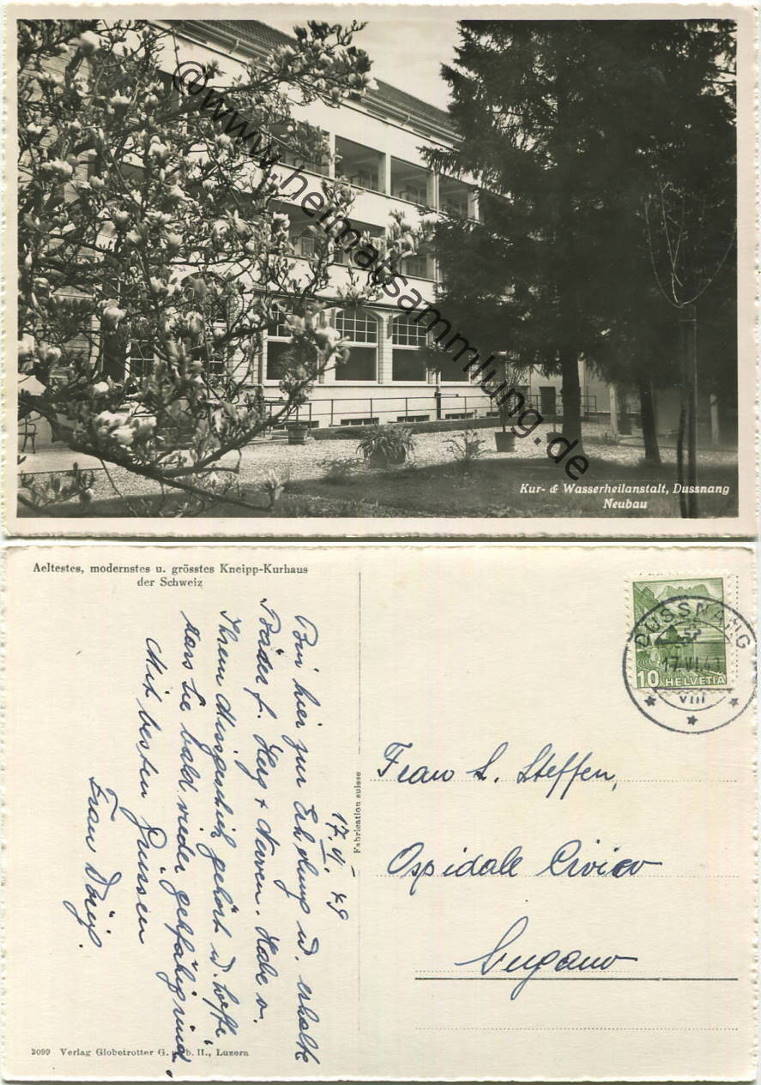 @www.heimatsammlung.de
Kur- & Wasserheilanstalt, Dussnang
Neubau
Aeltestes, modernstes u. grösstes Kneipp-Kurhaus
der Schweiz
DUSSNANG
17.VI.4
VIII
10 HELVETIA
17. 49
Bin hier zur Erholung u. erhalte
Bäder f. Herz + Nerven. Habe v.
Ihrem Missgeschick gehört u. hoffe
dass Sie bald wieder gehfähig sind.
Mit besten Grüssen
Frau
Fabrication suisse
Frau L. Steffen,
Ospidale Civico
Lugano
2099 Verlag Globetrotter G. b. H., Luzern